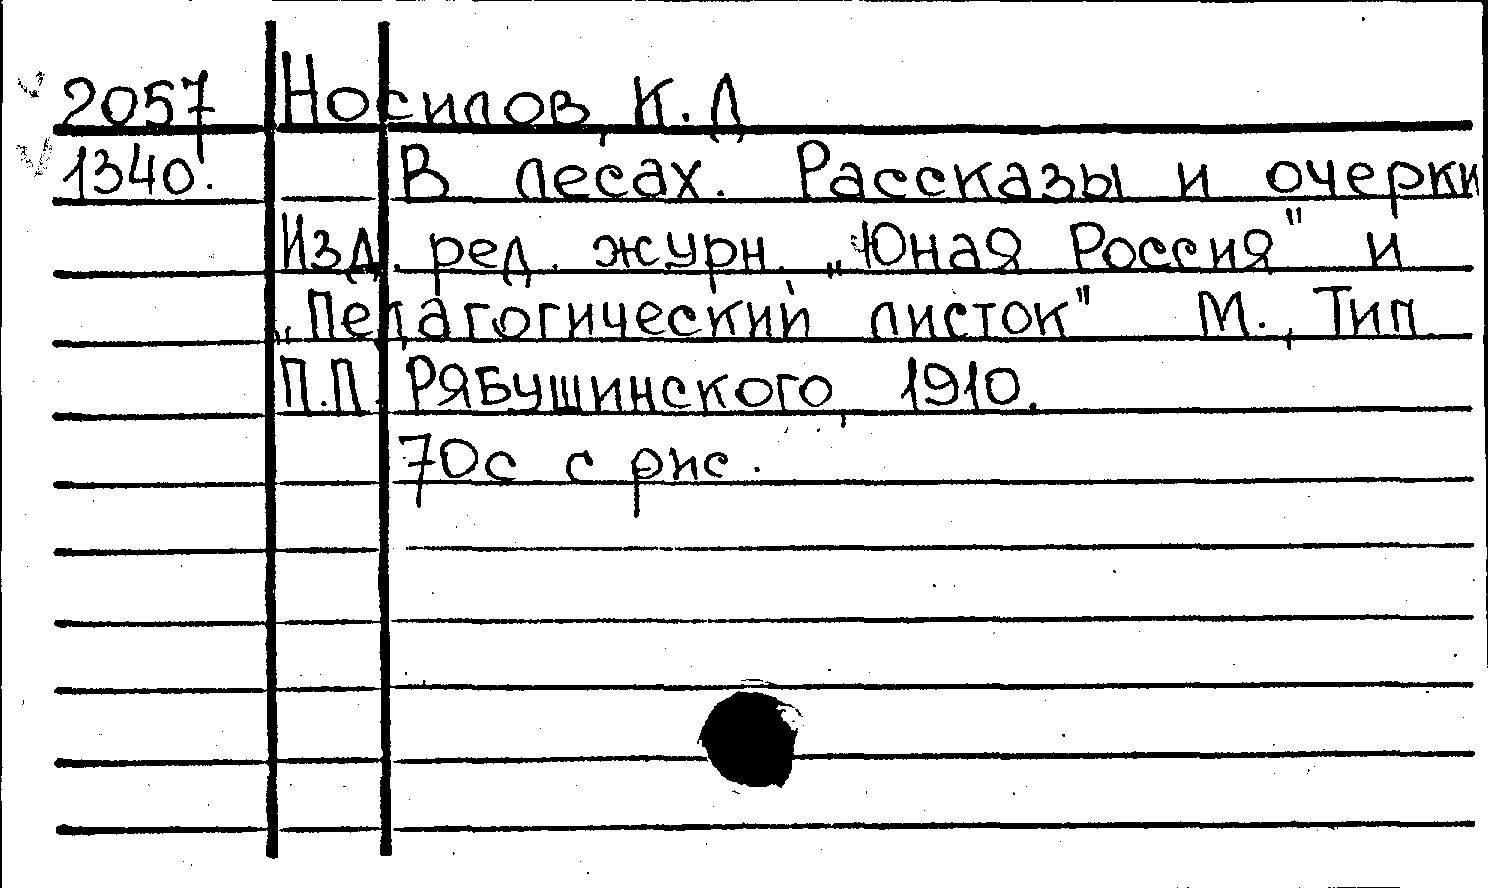 2057 Носилов, К.Д
1340. В лесах. Рассказы и очерки
Изд. ред. журн. „Юная Россия" и
„Педагогический листок" М., Тип.
П.П. Рябушинского, 1910.
70с с рис.